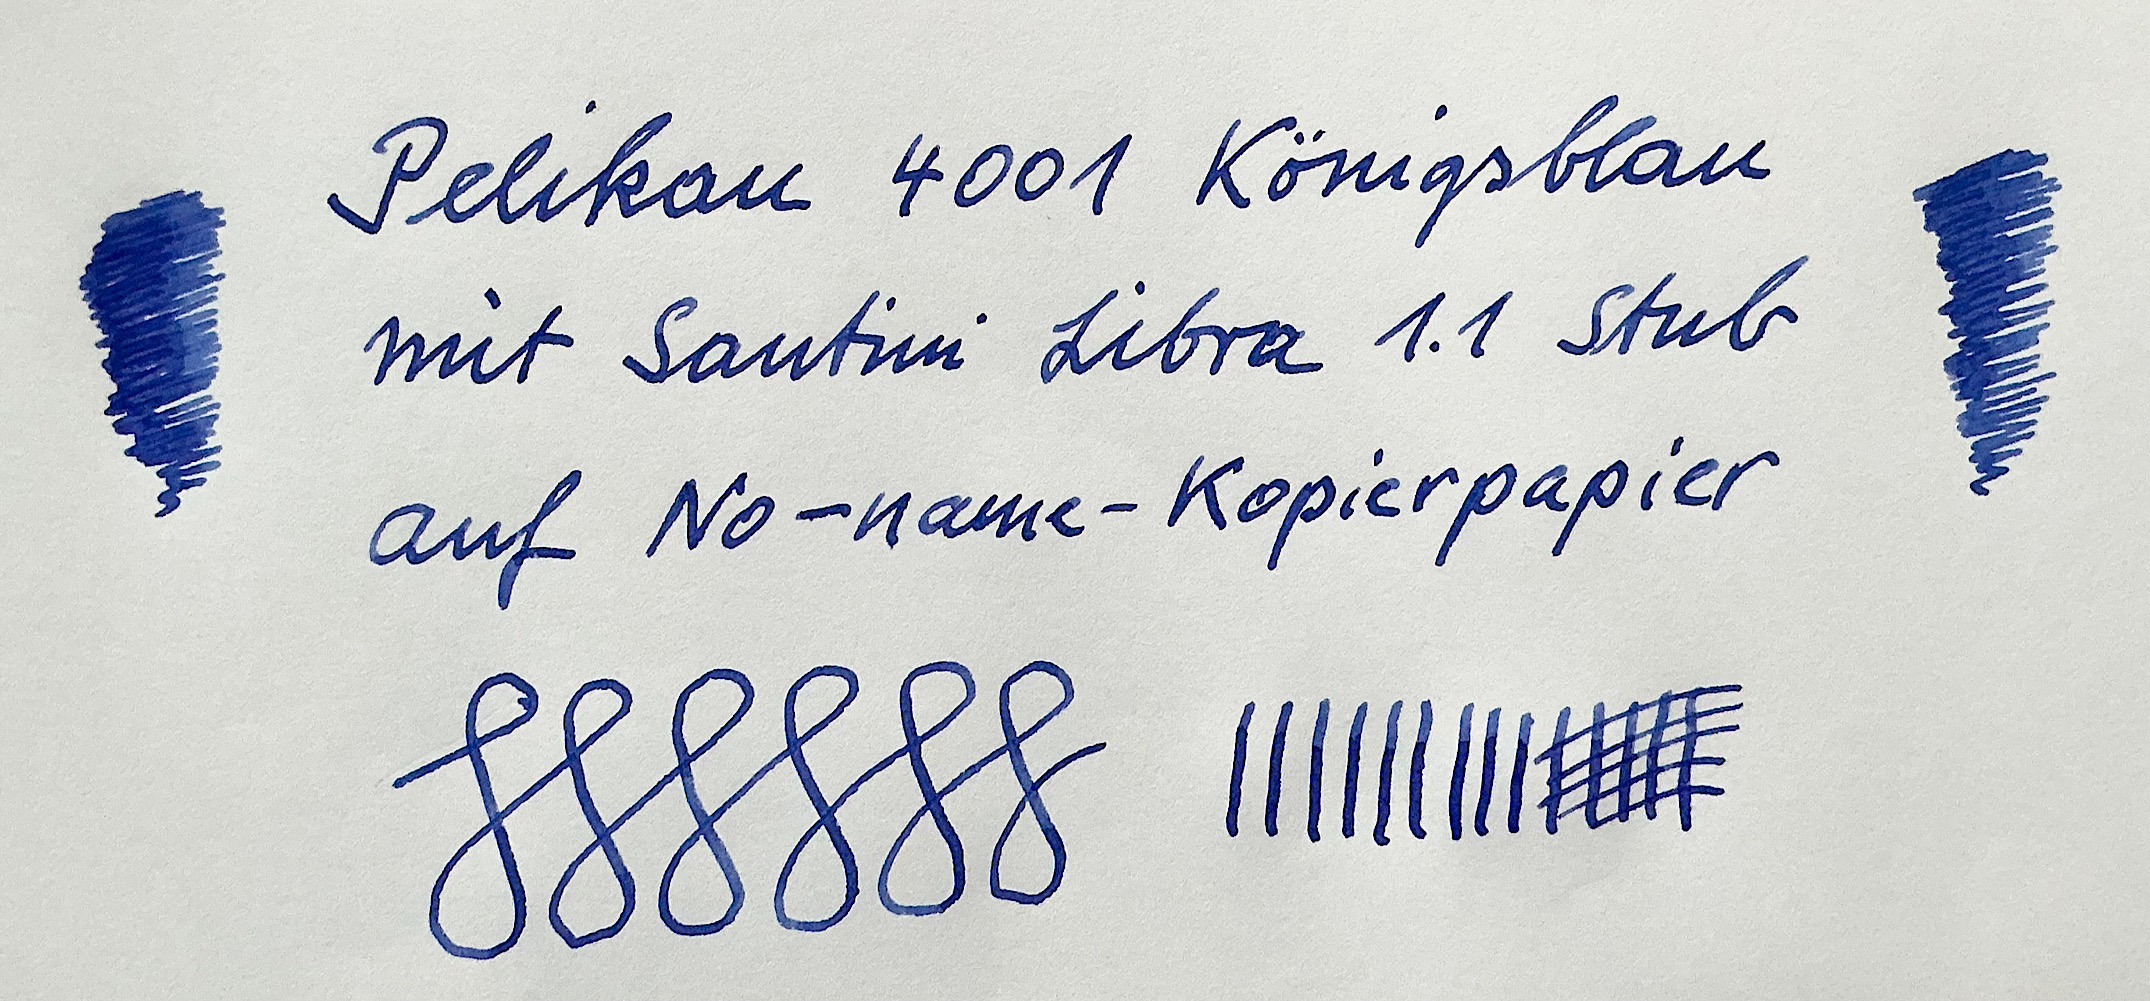 Pelikan 4001 Königsblau
mit Santini Libra 1.1 Stub
auf No-name-Kopierpapier